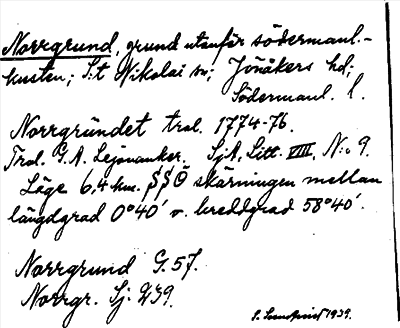 Norrgrund, grund utanför södermanl.-
kusten; S:t Nikolai sn; Jönåkers hd;
Södermanl. l.
Norrgrundet trol. 1774-76.
Trol. G.A. Lejonanker. SjA, Litt. VIII, N:o 9.
Läge 6,4 km. SSÖ skärningen mellan
längdgrad 0°40' o. breddgrad 58°40'.
Norrgrund G.57.
Norrgr. Sj: 239.
1939.